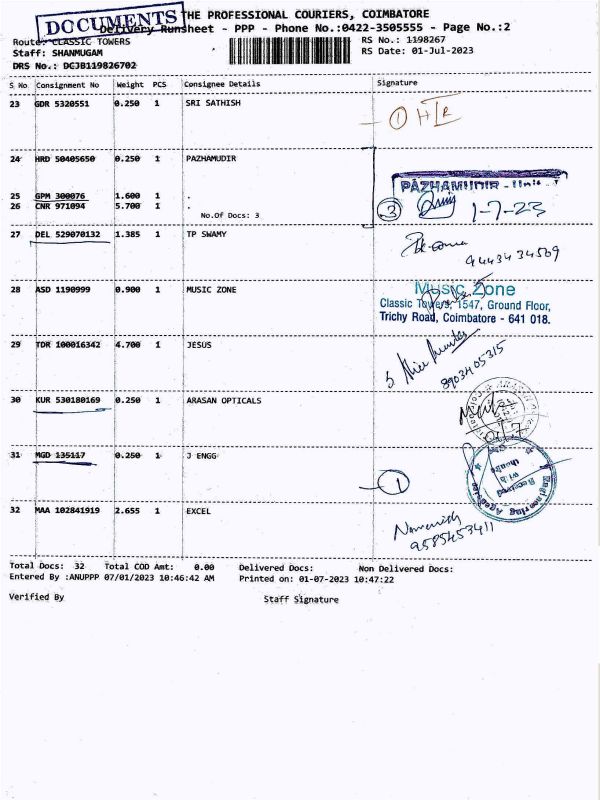 DOCUMENTS
THE PROFESSIONAL COURIERS, COIMBATORE
Delivery Runsheet - PPP - Phone No.:0422-3505555 - Page No.:2
Route: CLASSIC TOWERS
RS No.: 1198267
Staff: SHANMUGAM
RS Date: 01-Jul-2023
DRS No.: DCJB119826702
S No Consignment No Weight PCS Consignee Details Signature
23 GDR 5320551 0.250 1 SRI SATHISH
1
24 HRD 50405650 0.250 1 PAZHAMUDIR
PAZHAMUDIR - Unit
25 GPM 300076 1.600 1 .
26 CNR 971094 5.700 1 .
3 1-7-23
No.Of Docs: 3
27 DEL 529070132 1.385 1 TP SWAMY
9443434509
28 ASD 1190999 0.900 1 MUSIC ZONE
Music Zone
Classic Towers, 1547, Ground Floor,
Trichy Road, Coimbatore - 641 018.
29 TDR 100016342 4.700 1 JESUS
8903405315
30 KUR 530180169 0.250 1 ARASAN OPTICALS
31 MGD 135117 0.250 1 J ENGG
1
Received
with
thanks
Engineering Agencies
32 MAA 102841919 2.655 1 EXCEL
9585453411
Total Docs: 32 Total COD Amt: 0.00 Delivered Docs: Non Delivered Docs:
Entered By :ANUPPP 07/01/2023 10:46:42 AM Printed on: 01-07-2023 10:47:22
Verified By Staff Signature